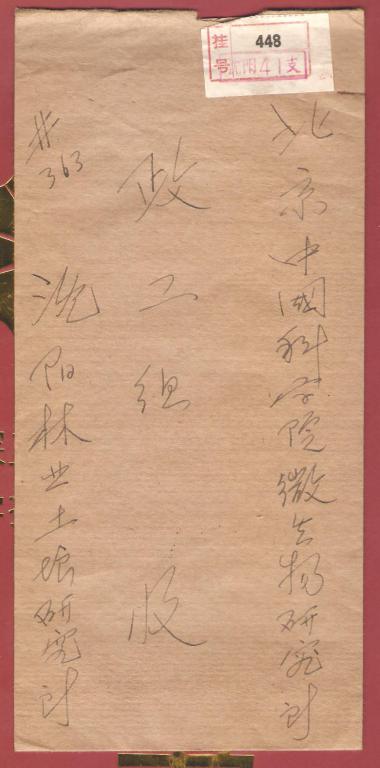 挂号
448
沈阳41支
北京中國科学院微生物研究所
政工组 收
#363
沈阳林业土壤研究所